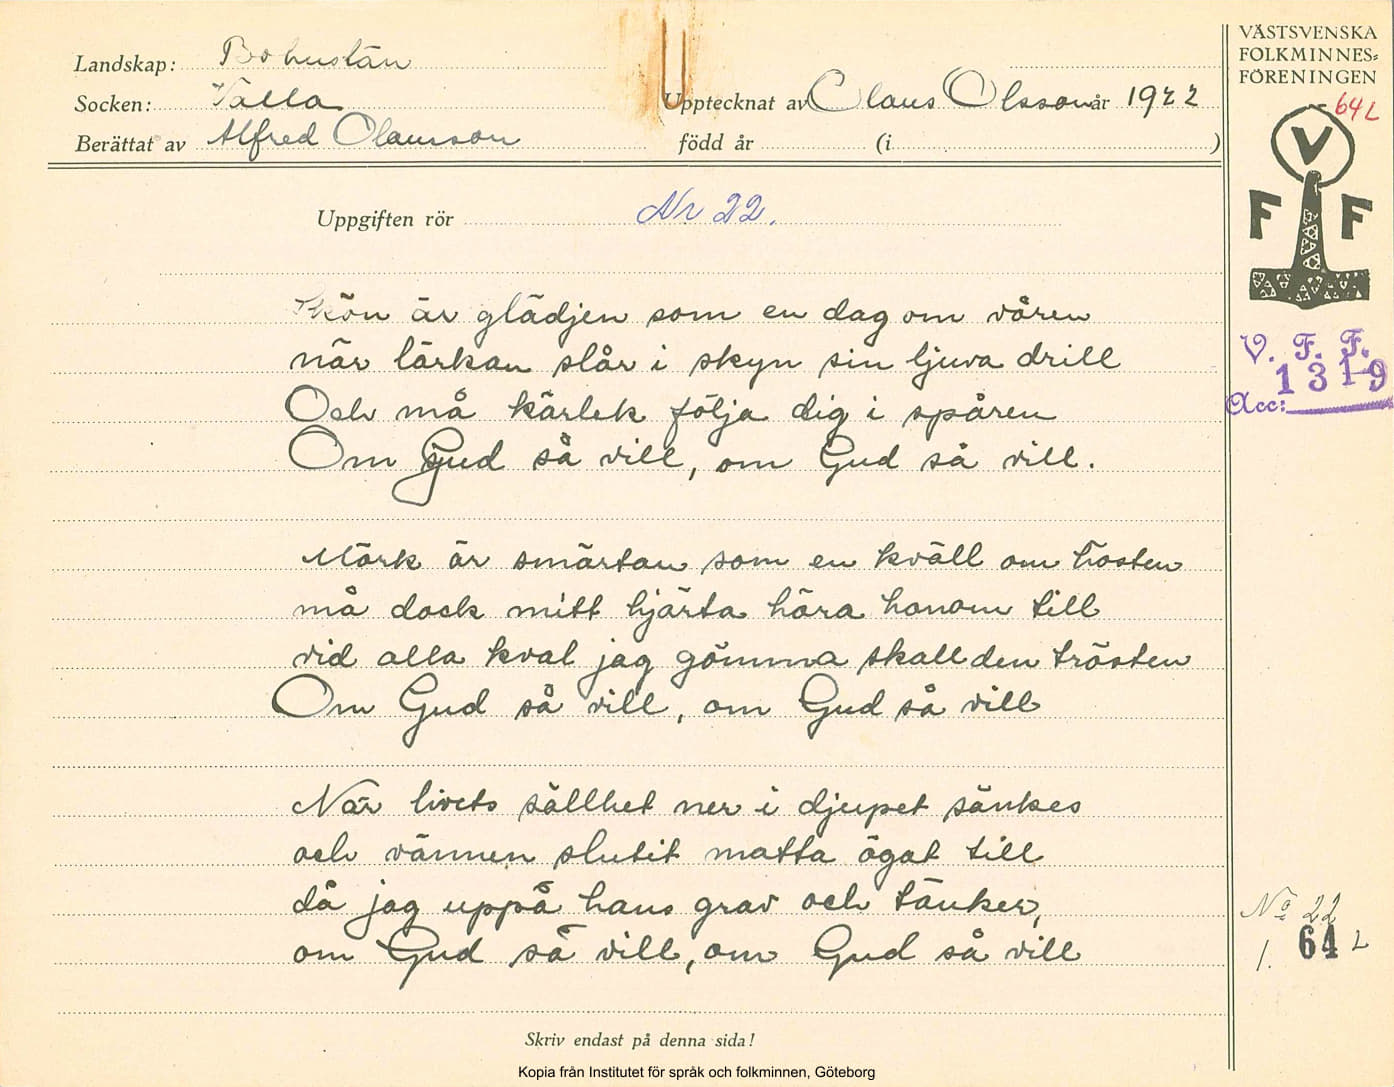 Landskap: Bohuslän
Socken: Valla
Berättat av Alfred Olausson
Upptecknat av Claus Olsson år 1922
född år (i )
VÄSTSVENSKA
FOLKMINNES=
FÖRENINGEN
64 L
V
F F
Uppgiften rör Nr 22.
Skön är glädjen som en dag om våren
när lärkan slår i skyn sin ljuva drill
Och må kärlek följa dig i spåren
Om Gud så vill, om Gud så vill.
Mörk är smärtan som en kväll om hösten
må dock mitt hjärta höra honom till
vid alla kval jag gömma skall den trösten
Om Gud så vill, om Gud så vill
När livets sällhet ner i djupet sänkes
och vännen slutit matta ögat till
då jag uppå hans grav och tänker,
om Gud så vill, om Gud så vill
V. F. F.
1319
Acc:
No 22
1. 64 L
Skriv endast på denna sida!
Kopia från Institutet för språk och folkminnen, Göteborg